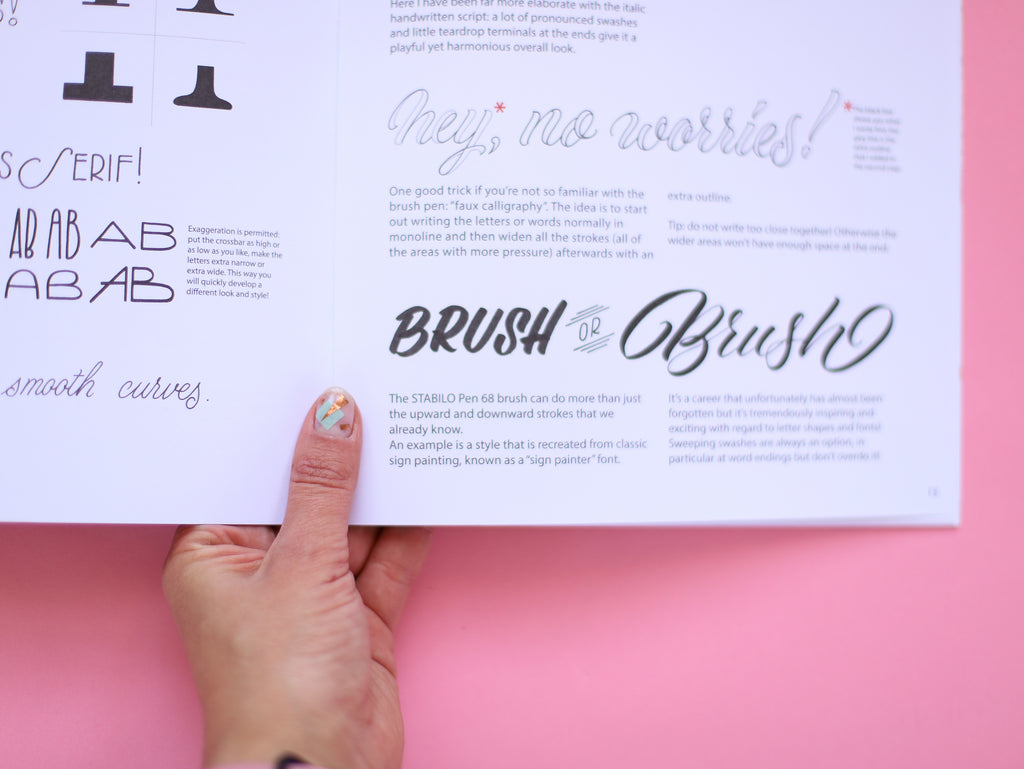 S!
S SERIF!
AB AB AB
AB AB
Exaggeration is permitted:
put the crossbar as high or
as low as you like, make the
letters extra narrow or
extra wide. This way you
will quickly develop a
different look and style!
smooth curves.
Here I have been far more elaborate with the italic
handwritten script: a lot of pronounced swashes
and little teardrop terminals at the ends give it a
playful yet harmonious overall look.
hey,* no worries! *
One good trick if you're not so familiar with the
brush pen: "faux calligraphy". The idea is to start
out writing the letters or words normally in
monoline and then widen all the strokes (all of
the areas with more pressure) afterwards with an
extra outline.
Tip: do not write too close together! Otherwise the
wider areas won't have enough space at the end.
BRUSH OR Brush
The STABILO Pen 68 brush can do more than just
the upward and downward strokes that we
already know.
An example is a style that is recreated from classic
sign painting, known as a "sign painter" font.
It's a career that unfortunately has almost been
forgotten but it's tremendously inspiring and
exciting with regard to letter shapes and fonts!
Sweeping swashes are always an option, in
particular at word endings but don't overdo it!